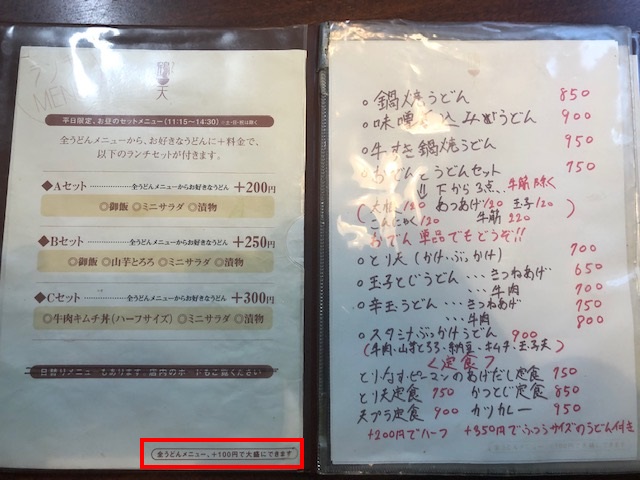 ランチ
MENU
鶴天
平日限定、お昼のセットメニュー(11:15〜14:30) ※土・日・祝は除く
全うどんメニューから、お好きなうどんに+料金で、
以下のランチセットが付きます。
◆Aセット ……… 全うどんメニューからお好きなうどん +200円
◎御飯 ◎ミニサラダ ◎漬物
◆Bセット ……… 全うどんメニューからお好きなうどん +250円
◎御飯 ◎山芋とろろ ◎ミニサラダ ◎漬物
◆Cセット ……… 全うどんメニューからお好きなうどん +300円
◎牛肉キムチ丼(ハーフサイズ) ◎ミニサラダ ◎漬物
日替りメニューもあります。店内のボードもご覧ください
全うどんメニュー、+100円で大盛にできます
○鍋焼うどん 850
○味噌 込みうどん 900
○牛すき鍋焼うどん 950
○おでんとうどんセット 750
!! 下から3点、牛筋除く
(大根/120 あつあげ/120 玉子/120
こんにゃく/120 牛筋 220)
おでん 単品でもどうぞ!!
○とり天(かけ・ぶっかけ) 700
○玉子とじうどん・・・きつねあげ 650
・・・牛肉 700
○辛玉うどん・・・きつねあげ 750
・・・牛肉 800
○スタミナぶっかけうどん 900
(牛肉・山芋とろろ・納豆・キムチ・玉子天)
<定食>
とり・なす・ピーマンのあげだし定食 750
とり天定食 750 かつとじ定食 850
天プラ定食 900 カツカレー 950
+200円でハーフ +350円でふつうサイズのうどん付き